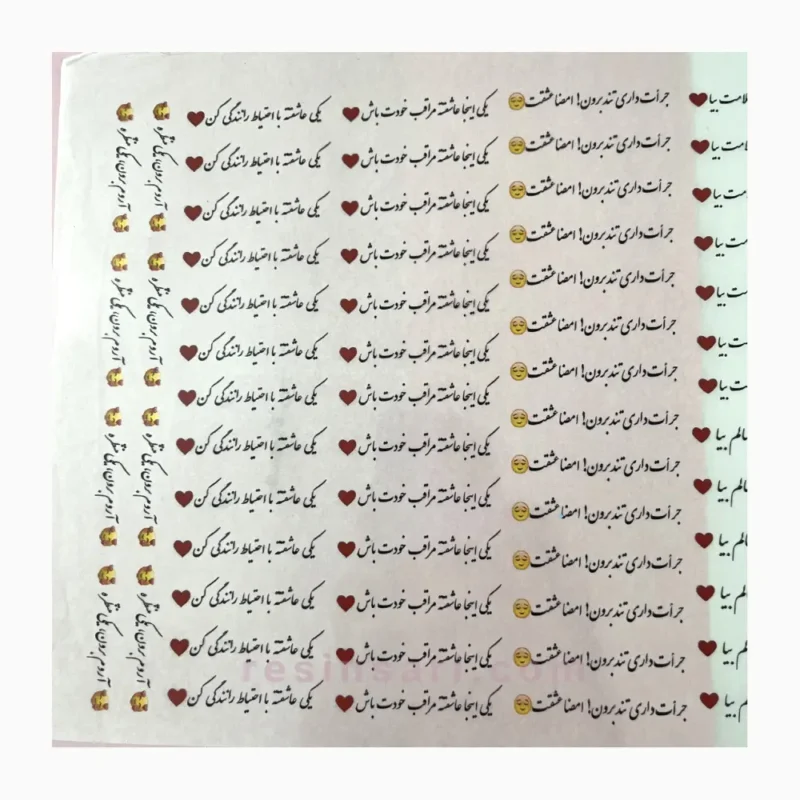 بیا
بیا
بیا
بیا
بیا
بیا
بیا
بیا
بیا
بیا
بیا
بیا
بیا
جرأت داری تند برون! امضا عشقت
جرأت داری تند برون! امضا عشقت
جرأت داری تند برون! امضا عشقت
جرأت داری تند برون! امضا عشقت
جرأت داری تند برون! امضا عشقت
جرأت داری تند برون! امضا عشقت
جرأت داری تند برون! امضا عشقت
جرأت داری تند برون! امضا عشقت
جرأت داری تند برون! امضا عشقت
جرأت داری تند برون! امضا عشقت
جرأت داری تند برون! امضا عشقت
جرأت داری تند برون! امضا عشقت
جرأت داری تند برون! امضا عشقت
جرأت داری تند برون! امضا عشقت
یکی اینجا عاشقته مراقب خودت باش
یکی اینجا عاشقته مراقب خودت باش
یکی اینجا عاشقته مراقب خودت باش
یکی اینجا عاشقته مراقب خودت باش
یکی اینجا عاشقته مراقب خودت باش
یکی اینجا عاشقته مراقب خودت باش
یکی اینجا عاشقته مراقب خودت باش
یکی اینجا عاشقته مراقب خودت باش
یکی اینجا عاشقته مراقب خودت باش
یکی اینجا عاشقته مراقب خودت باش
یکی اینجا عاشقته مراقب خودت باش
یکی اینجا عاشقته مراقب خودت باش
یکی اینجا عاشقته مراقب خودت باش
یکی عاشقته با احتیاط رانندگی کن
یکی عاشقته با احتیاط رانندگی کن
یکی عاشقته با احتیاط رانندگی کن
یکی عاشقته با احتیاط رانندگی کن
یکی عاشقته با احتیاط رانندگی کن
یکی عاشقته با احتیاط رانندگی کن
یکی عاشقته با احتیاط رانندگی کن
یکی عاشقته با احتیاط رانندگی کن
یکی عاشقته با احتیاط رانندگی کن
یکی عاشقته با احتیاط رانندگی کن
یکی عاشقته با احتیاط رانندگی کن
یکی عاشقته با احتیاط رانندگی کن
یکی عاشقته با احتیاط رانندگی کن
آروم برون، یکی منتظره
آروم برون، یکی منتظره
آروم برون، یکی منتظره
آروم برون، یکی منتظره
آروم برون، یکی منتظره
آروم برون، یکی منتظره
آروم برون، یکی منتظره
آروم برون، یکی منتظره